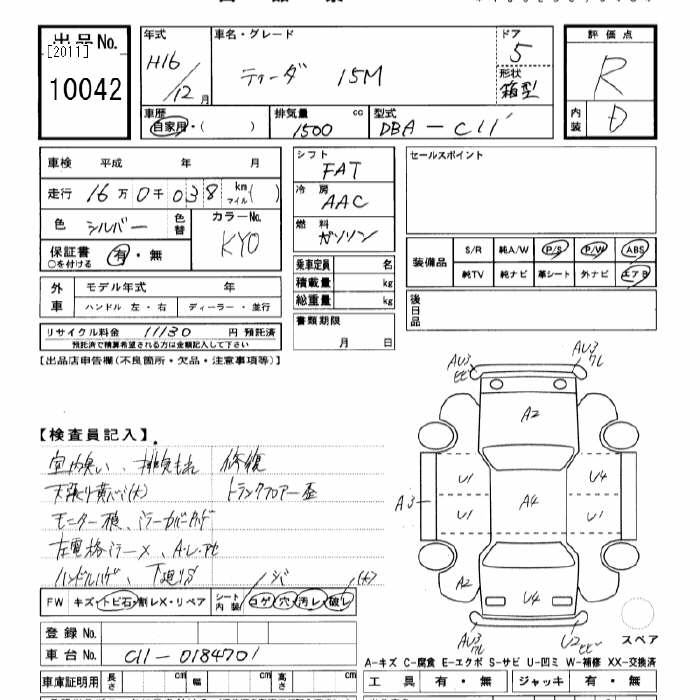 出品No.
[2011]
10042
年式
H16
12月
車名・グレード
ティーダ 15M
ドア
5
形状
箱型
評価点
R
内装
D
車歴
自家用・( )
排気量
1500 cc
型式
DBA-C11
車検 平成 年 月
走行 16万0千038 km マイル( )
色 シルバー 色替
カラーNo.
KY0
保証書 有・無
○を付ける
外車
モデル年式 年
ハンドル 左・右 ディーラー・並行
リサイクル料金 11130 円 預託済
預託済で精算希望される方は金額記入して下さい
シフト
FAT
冷房
AAC
燃料
ガソリン
乗車定員 名
積載量 kg
総重量 kg
書類期限
月 日
セールスポイント
装備品
S/R 純A/W P/S P/W ABS
純TV 純ナビ 革シート 外ナビ エアB
後日品
【出品店申告欄(不良箇所・欠品・注意事項等)】
【検査員記入】
修復
トランクフロアー歪
FW キズ・トビ石・割レX・リペア
シート内装 コゲ・穴・汚レ・破レ
登録No.
車台No. C11-0184701
車庫証明用 長さ 幅 高さ
AU3
AU3
A2
U1
U4
A3
A4
U1
U1
A2
U4
AU3
U2
スペア
A-キズ C-腐食 E-エクボ S-サビ U-凹ミ W-補修 XX-交換済
工具 有・無 ジャッキ 有・無